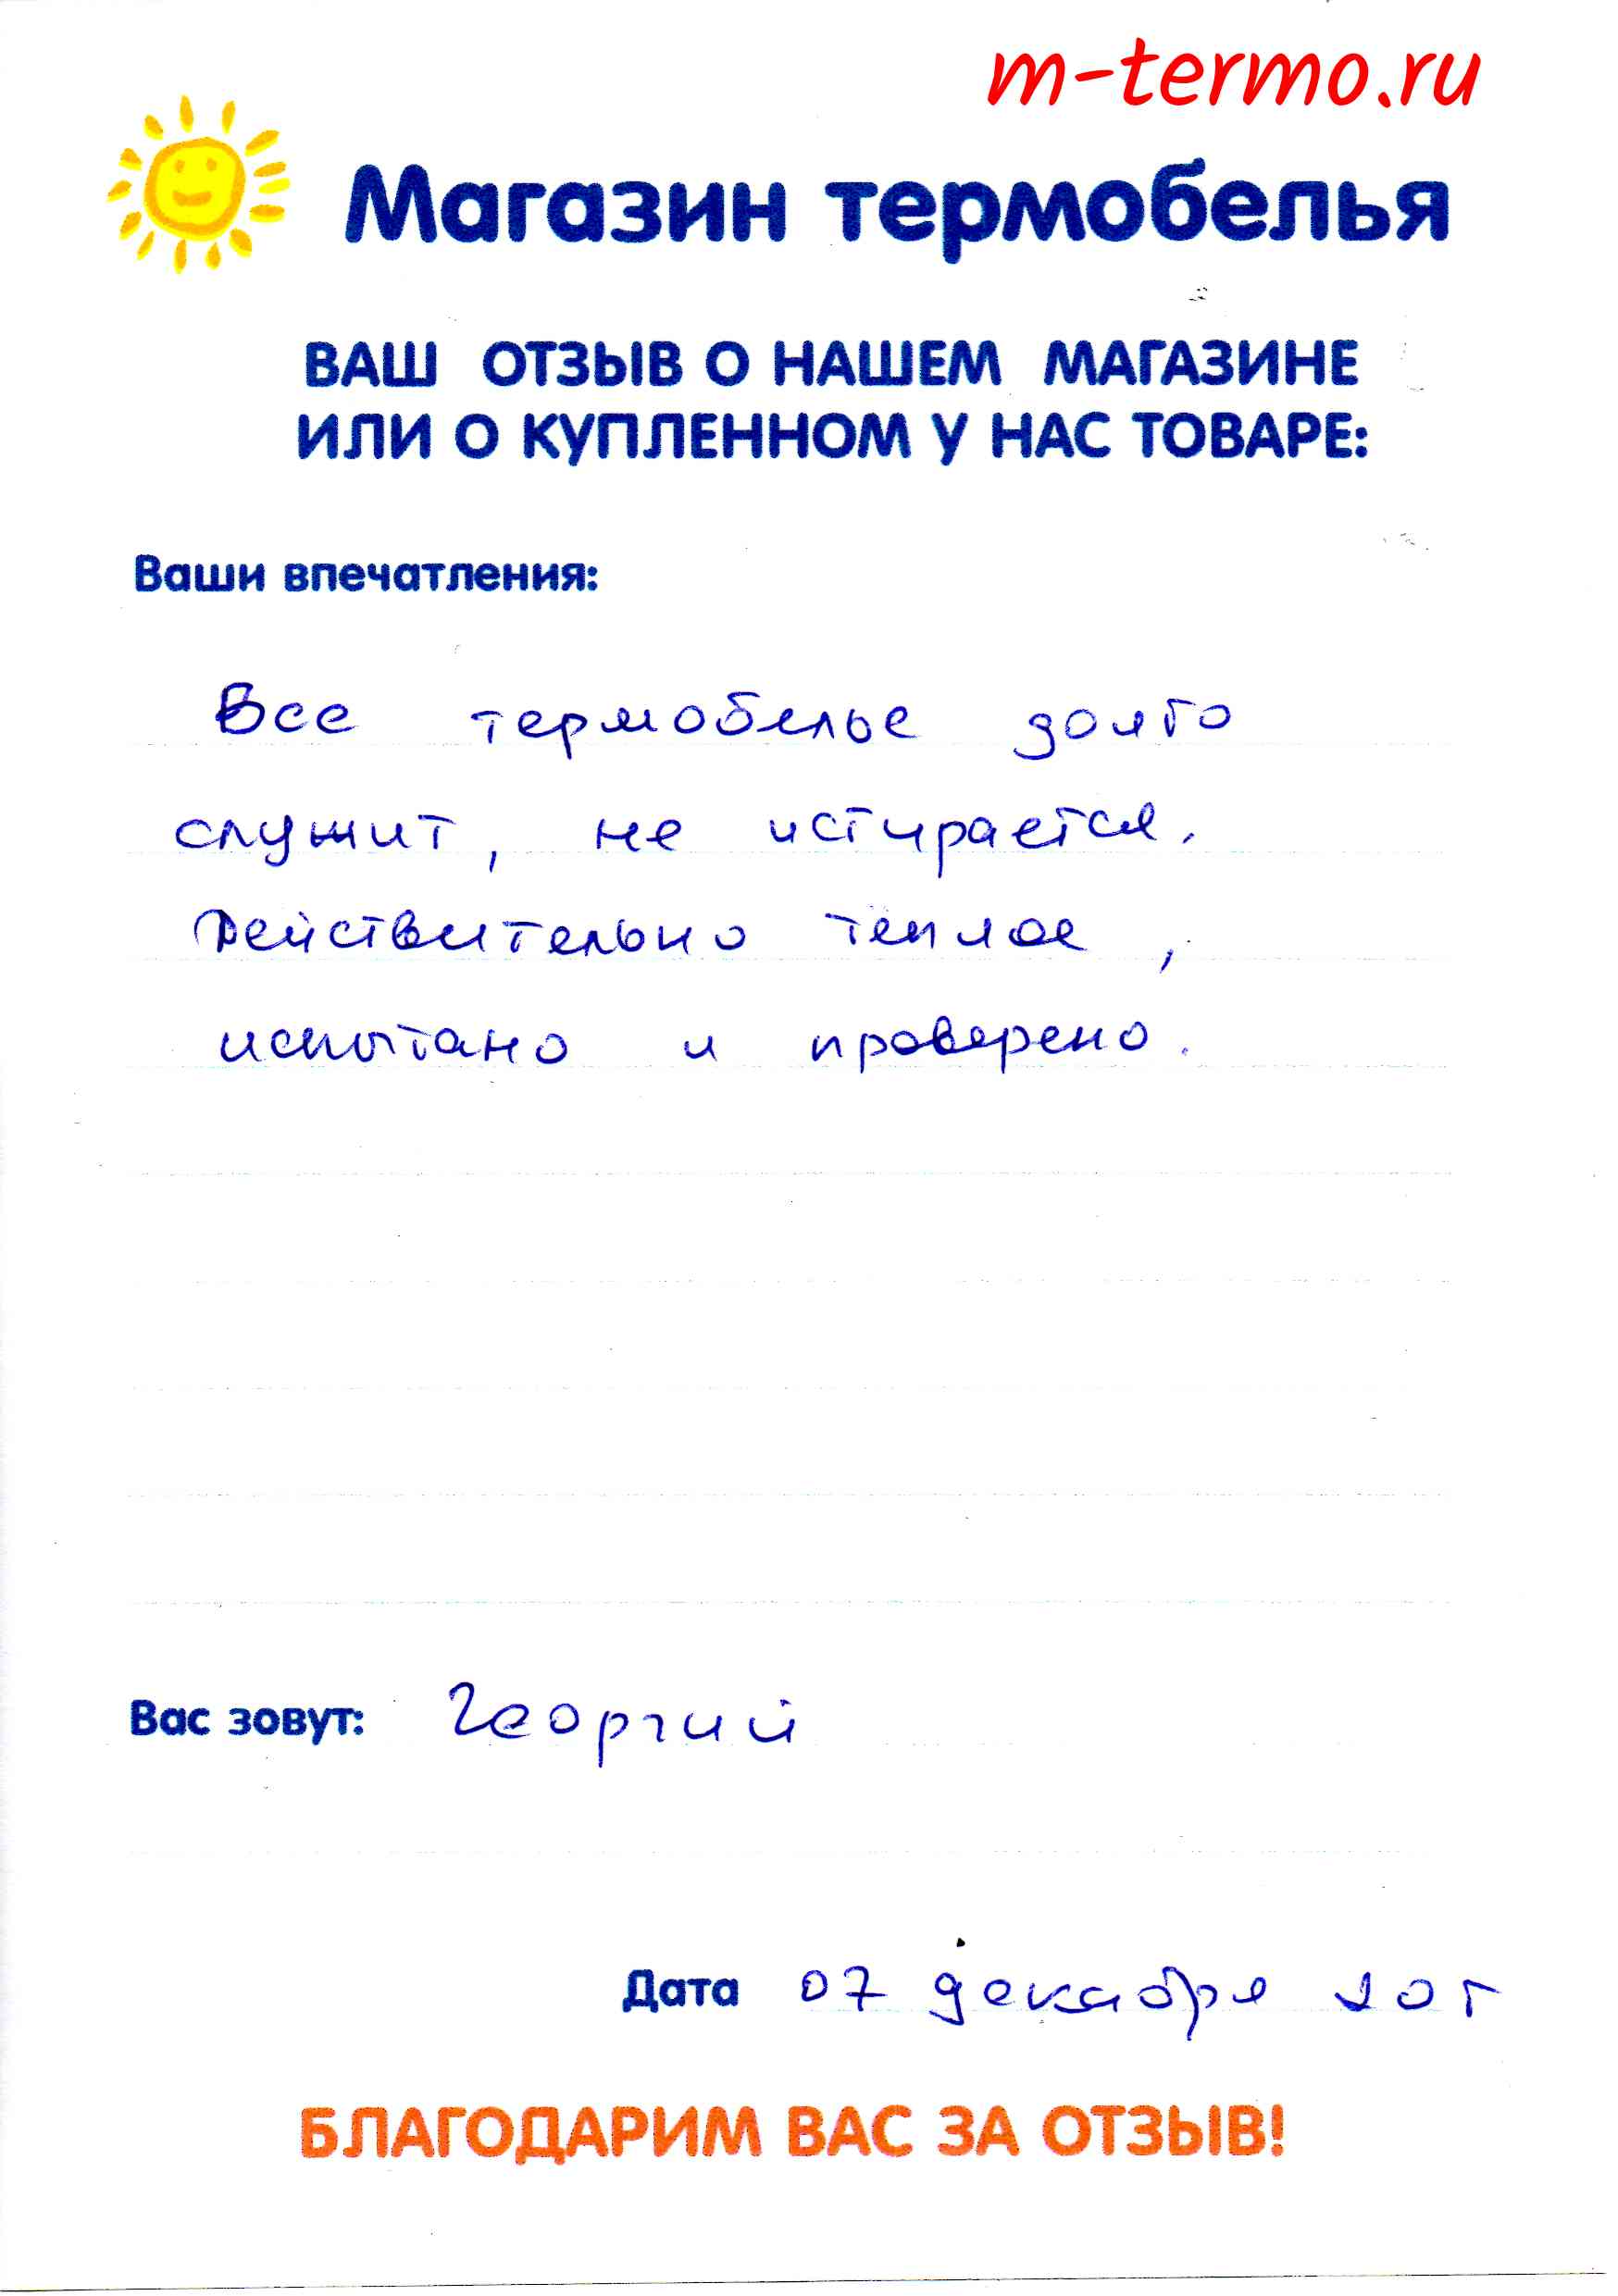 m-termo.ru
Магазин термобелья
ВАШ ОТЗЫВ О НАШЕМ МАГАЗИНЕ
ИЛИ О КУПЛЕННОМ У НАС ТОВАРЕ:
Ваши впечатления:
Все термобелье долго
служит, не истирается.
Действительно теплое,
испытано и проверено.
Вас зовут: Георгий
Дата 07 декабря 20 г
БЛАГОДАРИМ ВАС ЗА ОТЗЫВ!